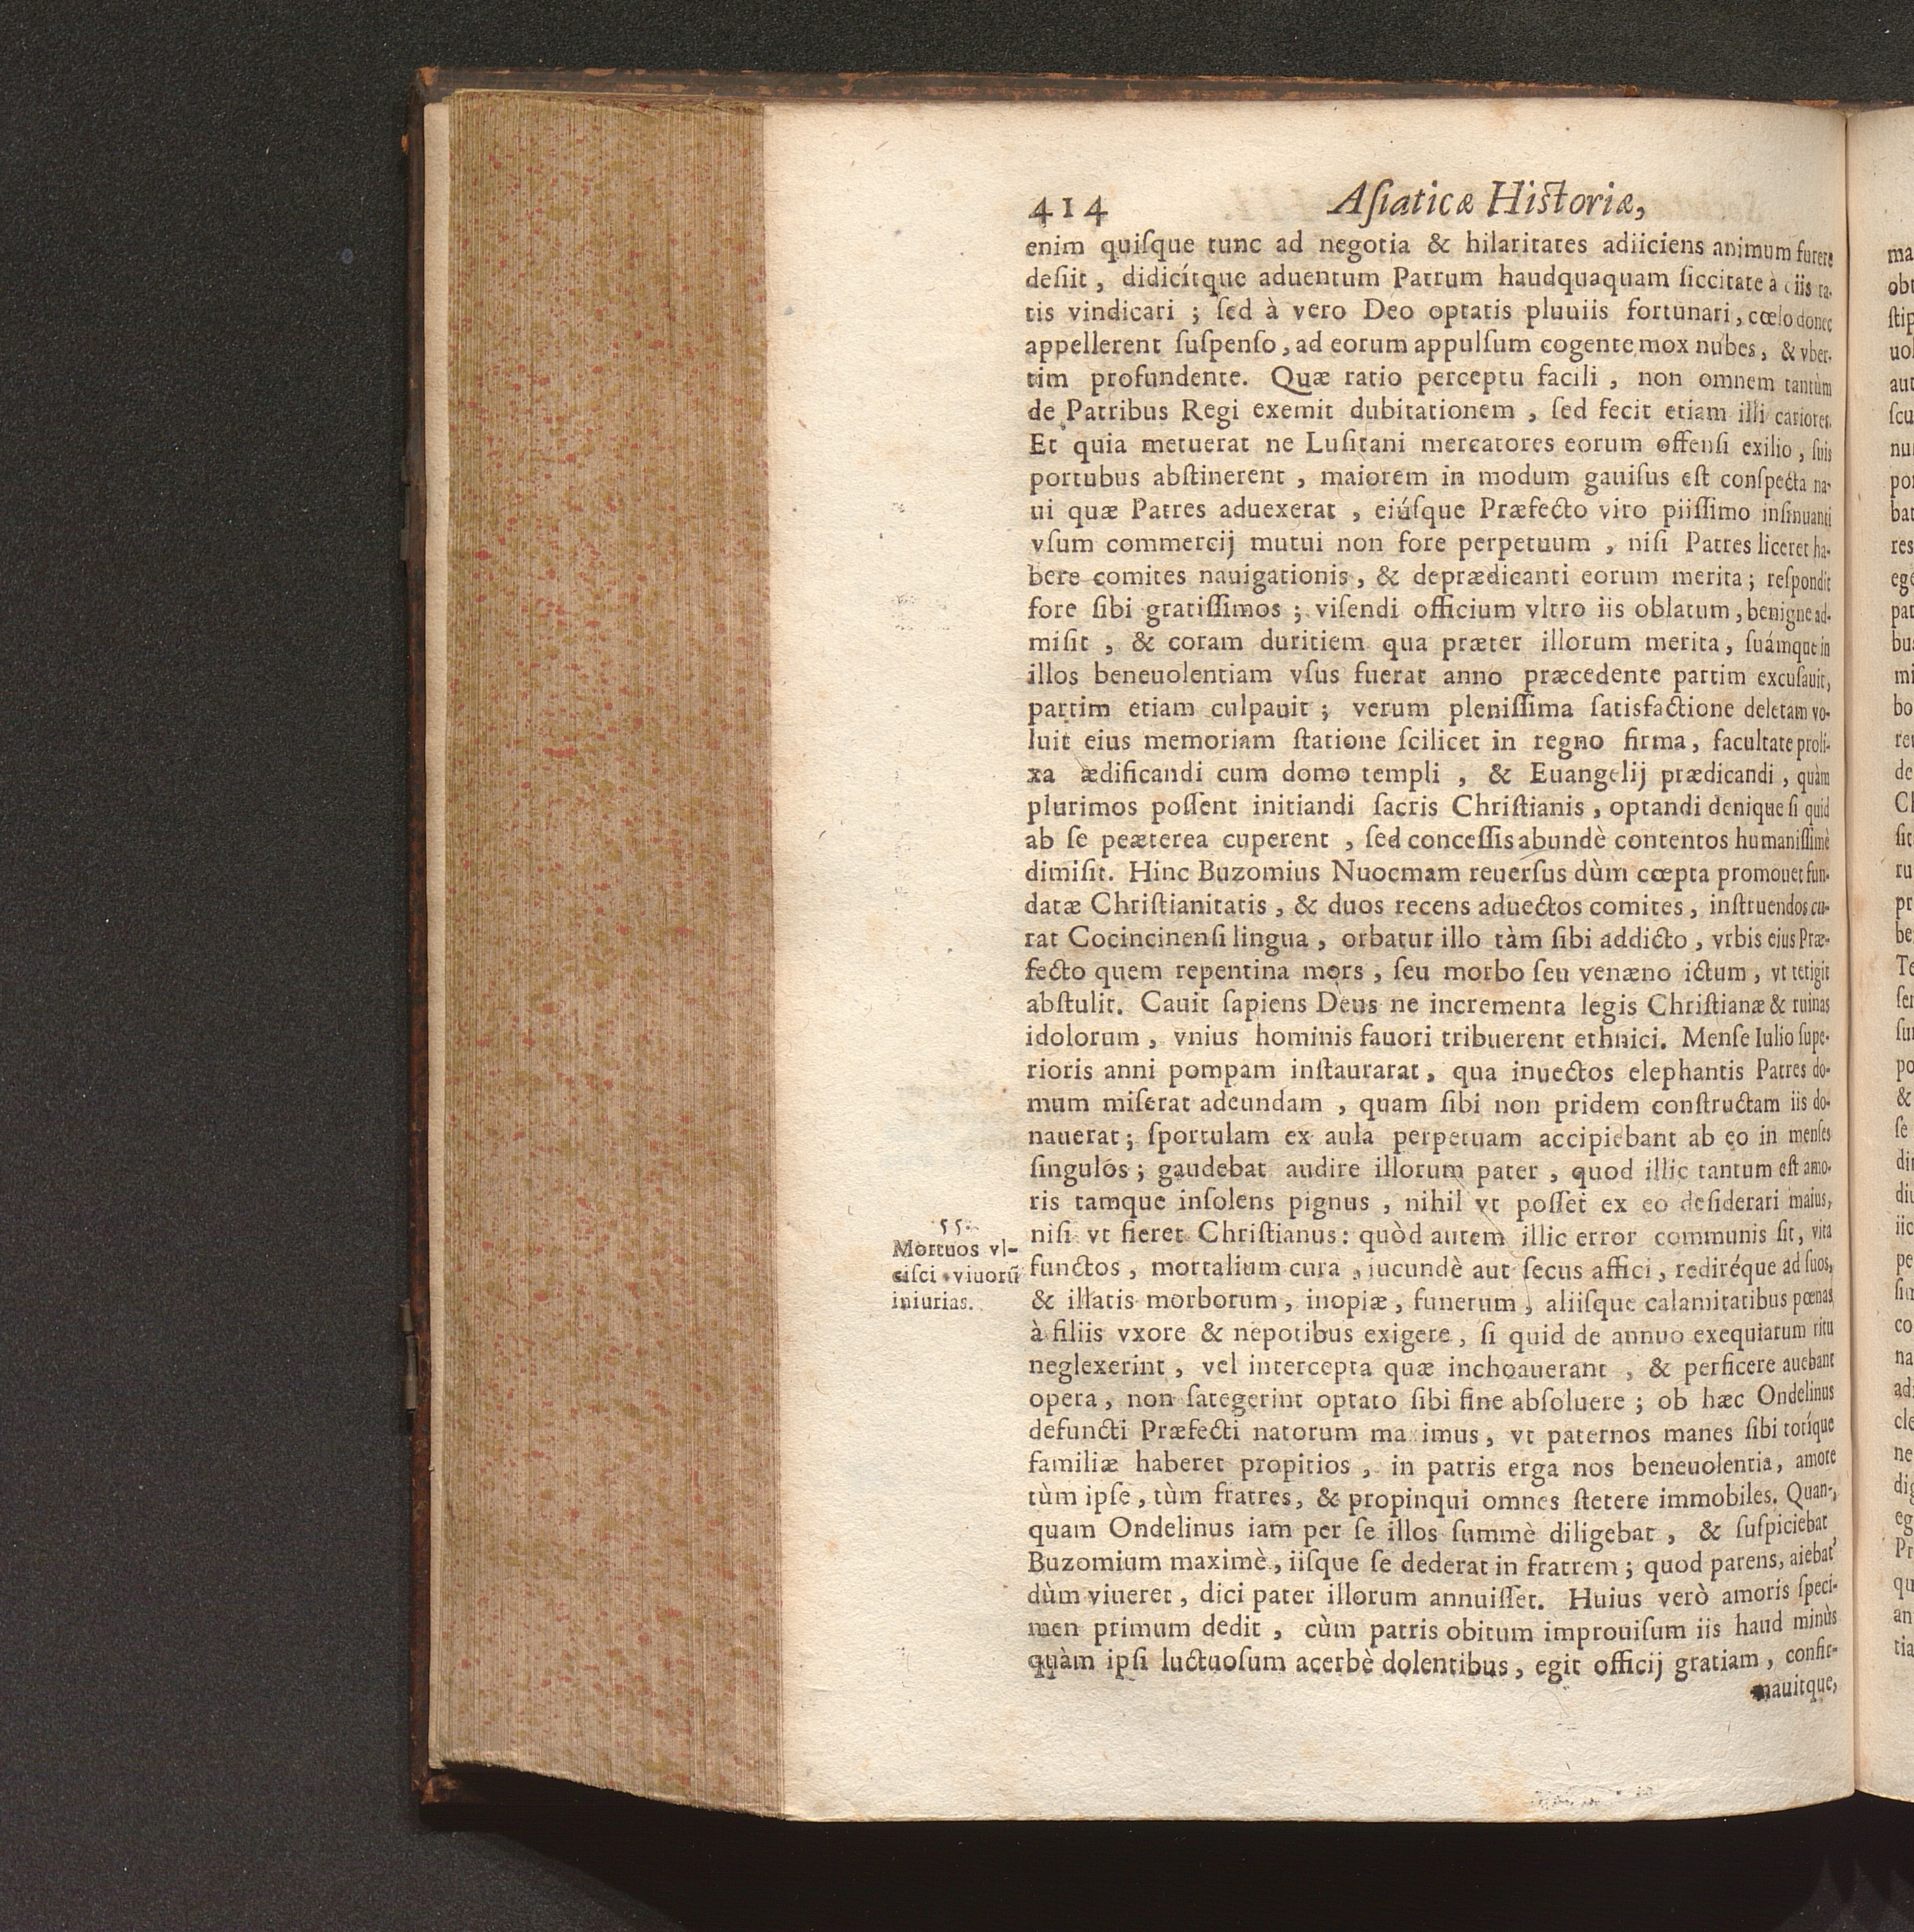 414 Aſiaticæ Hiſtoriæ,
enim quiſque tunc ad negotia & hilaritates adiiciens animum furere
deſiit, didicítque aduentum Patrum haudquaquam ſiccitate à diis ra-
tis vindicari ; ſed à vero Deo optatis pluuiis fortunari, cœlo donec
appellerent ſuſpenſo, ad eorum appulſum cogente mox nubes, & vber-
tim profundente. Quæ ratio perceptu facili, non omnem tantùm
de Patribus Regi exemit dubitationem, ſed fecit etiam illi cariores.
Et quia metuerat ne Luſitani mercatores eorum offenſi exilio, ſuis
portubus abſtinerent, maiorem in modum gauiſus eſt conſpecta na-
ui quæ Patres aduexerat, eiúſque Præfecto viro piiſſimo inſinuanti
vſum commercij mutui non fore perpetuum, niſi Patres liceret ha-
bere comites nauigationis, & deprædicanti eorum merita; reſpondit
fore ſibi gratiſſimos ; viſendi officium vltro iis oblatum, benigne ad-
miſit, & coram duritiem qua præter illorum merita, ſuámque in
illos beneuolentiam vſus fuerat anno præcedente partim excuſauit,
partim etiam culpauit ; verum pleniſſima ſatisfactione deletam vo-
luit eius memoriam ſtatione ſcilicet in regno firma, facultate proli-
xa ædificandi cum domo templi, & Euangelij prædicandi, quàm
plurimos poſſent initiandi ſacris Chriſtianis, optandi denique ſi quid
ab ſe peæterea cuperent, ſed conceſſis abundè contentos humaniſſimè
dimiſit. Hinc Buzomius Nuocmam reuerſus dùm cœpta promouet fun-
datæ Chriſtianitatis, & duos recens aduectos comites, inſtruendos cu-
rat Cocincinenſi lingua, orbatur illo tàm ſibi addicto, vrbis eius Præ-
fecto quem repentina mors, ſeu morbo ſeu venæno ictum, vt tetigit
abſtulit. Cauit ſapiens Deus ne incrementa legis Chriſtianæ & ruinas
idolorum, vnius hominis fauori tribuerent ethnici. Menſe Iulio ſupe-
rioris anni pompam inſtaurarat, qua inuectos elephantis Patres do-
mum miſerat adeundam, quam ſibi non pridem conſtructam iis do-
nauerat; ſportulam ex aula perpetuam accipiebant ab eo in menſes
ſingulos ; gaudebat audire illorum pater, quod illic tantum eſt amo-
ris tamque inſolens pignus, nihil vt poſſet ex eo deſiderari maius,
niſi vt fieret Chriſtianus: quòd autem illic error communis ſit, vita
functos, mortalium cura, iucundè aut ſecus affici, rediréque ad ſuos,
& illatis morborum, inopiæ, funerum, aliiſque calamitatibus pœnas
à filiis vxore & nepotibus exigere, ſi quid de annuo exequiarum ritu
neglexerint, vel intercepta quæ inchoauerant, & perficere auebant
opera, non ſategerint optato ſibi fine abſoluere ; ob hæc Ondelinus
defuncti Præfecti natorum maximus, vt paternos manes ſibi totíque
familiæ haberet propitios, in patris erga nos beneuolentia, amore
tùm ipſe, tùm fratres, & propinqui omnes ſtetere immobiles. Quan-
quam Ondelinus iam per ſe illos ſummè diligebat, & ſuſpiciebat
Buzomium maximè, iiſque ſe dederat in fratrem ; quod parens, aiebat,
dùm viueret, dici pater illorum annuiſſet. Huius verò amoris ſpeci-
men primum dedit, cùm patris obitum improuiſum iis haud minùs
quàm ipſi luctuoſum acerbè dolentibus, egit officij gratiam, confir-
mauitque,
55.
Mortuos vl-
ciſci viuorũ
iniurias.
ma
obt
ſtip
uol
aut
ſcu
nu
por
bat
res
ege
pat
bu
mi
bo
re
de
Ch
ſit
ru
pr
be
Te
ſer
ſu
po
&
ſe
di
diu
iic
pe
ſi
co
na
ad
cle
ne
dig
eg
Pr
qu
an
tia